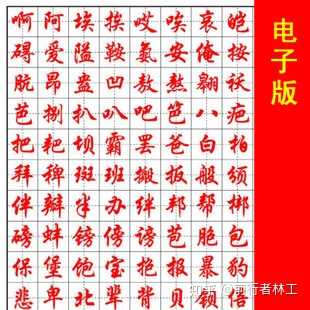 啊阿埃挨哎唉哀皑
碍爱隘鞍氨安俺按
肮昂盎凹敖熬翱袄
芭捌扒叭吧笆八疤
把耙坝霸罢爸白柏
拜稗斑班搬扳般颁
伴瓣半办绊邦帮梆
磅蚌镑傍谤苞胞包
保堡饱宝抱报暴豹
悲卑北辈背贝钡倍
电子版
知乎 @前行者林工